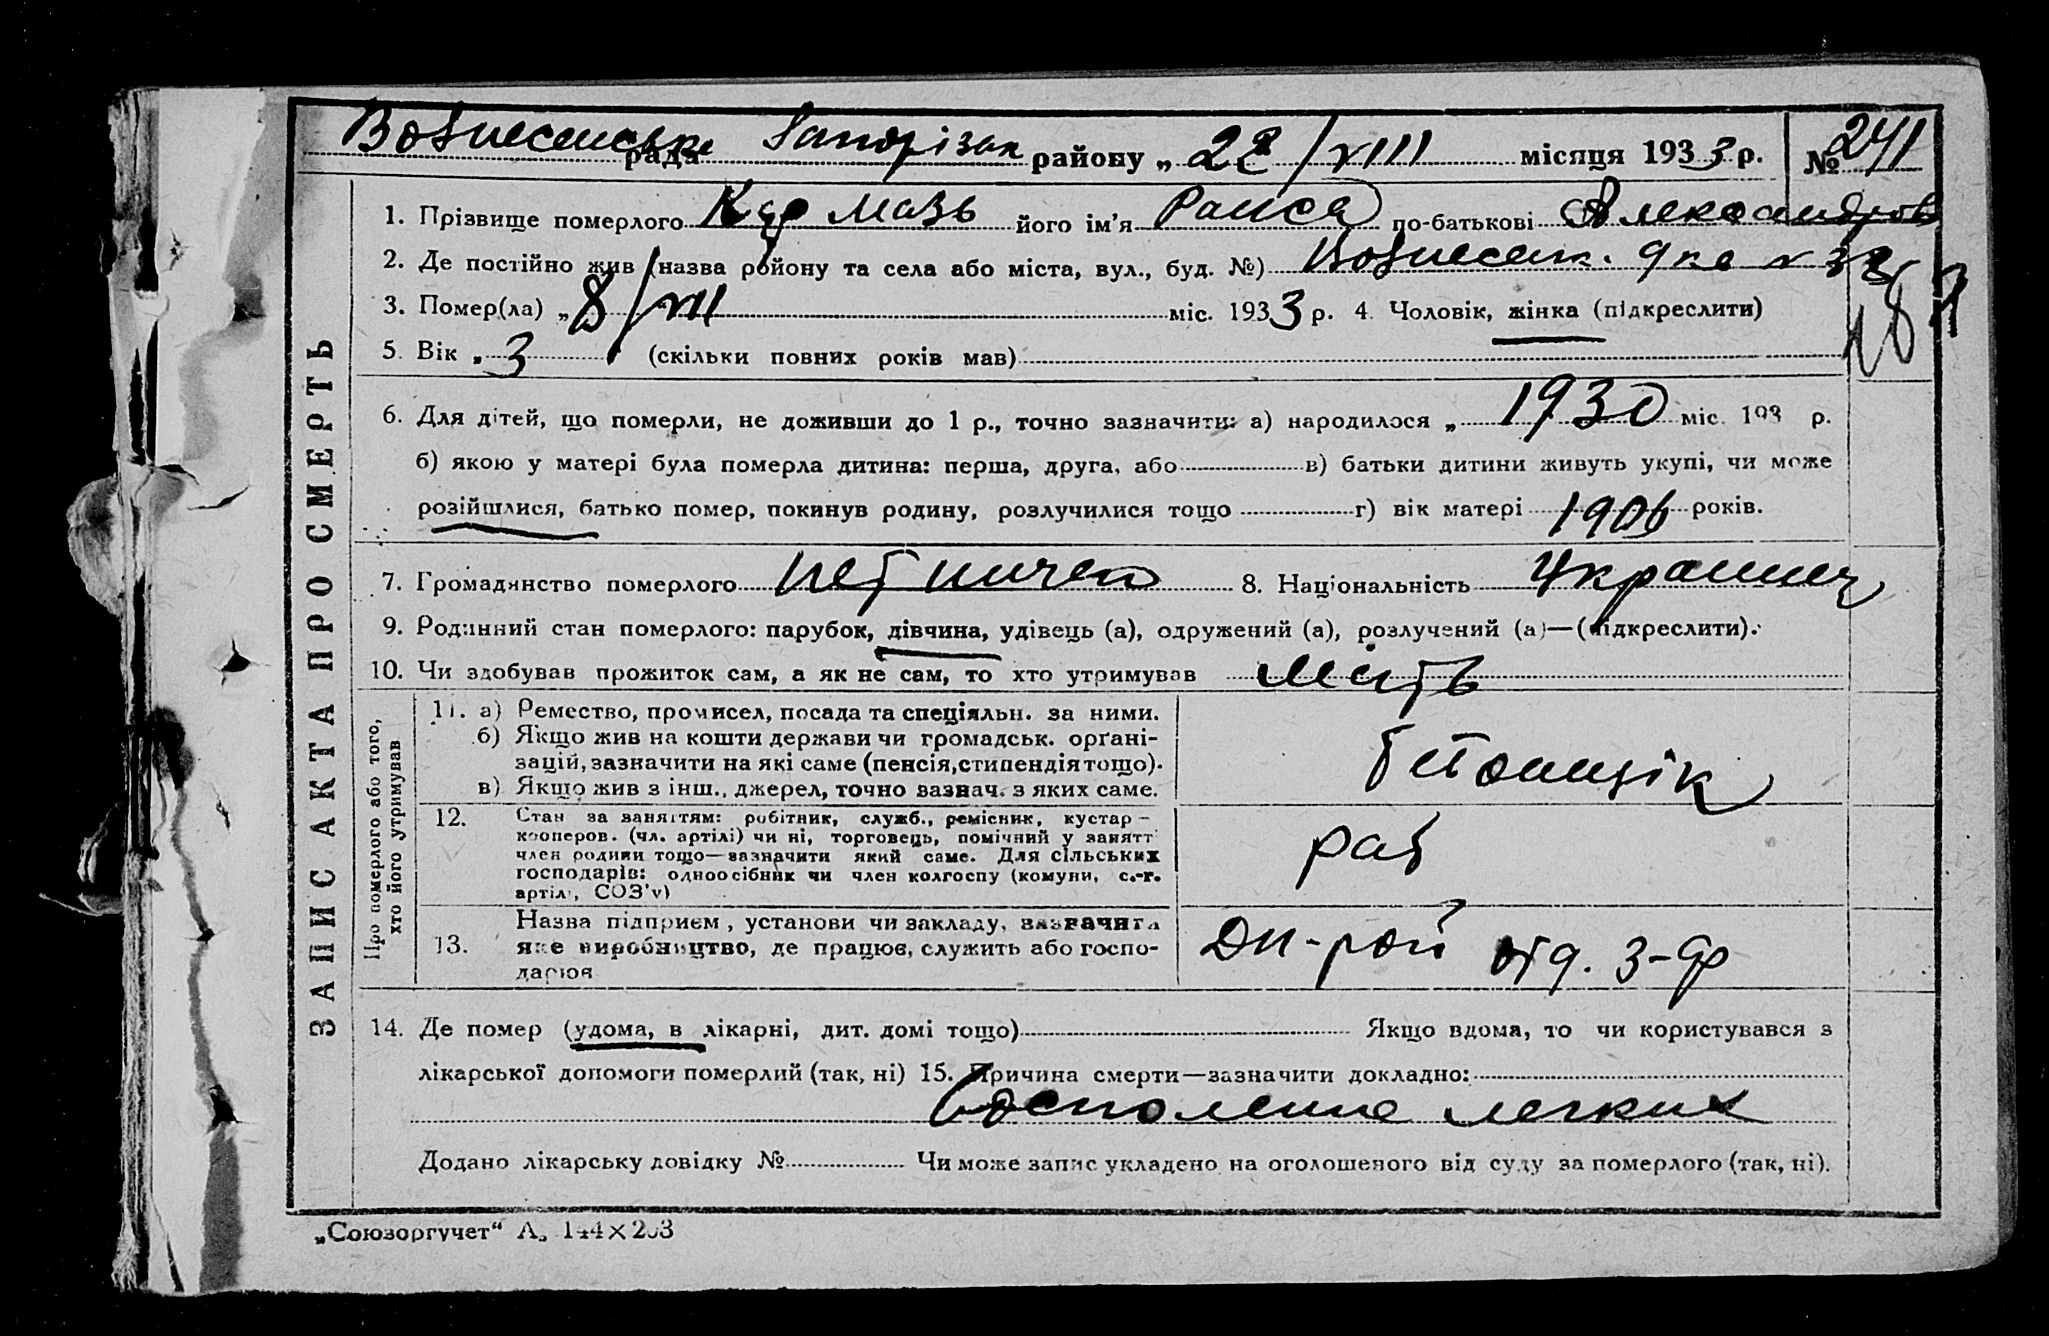 Вознесенська рада Запорізьк району „ 28/VIII місяця 1933 р. № 241
1. Прізвище померлого Кар мазь його ім’я Раиса по-батькові Александров
2. Де постійно жив (назва району та села або міста, вул., буд. №) Вознесенк.
3. Помер(ла) „ 8/VIII міс. 1933 р. 4. Чоловік, жінка (підкреслити)
5. Вік „ 3 (скільки повних років мав)
6. Для дітей, що померли, не доживши до 1 р., точно зазначити: а) народилося „ 1930 міс. 193 р.
б) якою у матері була померла дитина: перша, друга, або в) батьки дитини живуть укупі, чи може
розійшлися, батько помер, покинув родину, розлучилися тощо г) вік матері 1906 років.
7. Громадянство померлого 8. Національність Украинец
9. Родинний стан померлого: парубок, дівчина, удівець (а), одружений (а), розлучений (а)—(підкреслити).
10. Чи здобував прожиток сам, а як не сам, то хто утримував Мать
ЗАПИС АКТА ПРО СМЕРТЬ
Про померлого або того,
хто його утримував
11. а) Ремество, промисел, посада та спеціяльн. за ними.
б) Якщо жив на кошти держави чи громадськ. орґані-
зацій, зазначити на які саме (пенсія, стипендія тощо).
в) Якщо жив з інш., джерел, точно зазнач. з яких саме.
бетонщік
12. Стан за заняттям: робітник, служб., ремісник, кустар-
кооперов. (чл. артілі) чи ні, торговець, помічний у занятт
член родини тощо—зазначити який саме. Для сільських
господарів: одноосібник чи член колгоспу (комуни, с.-г.
артілі, СОЗ’у)
раб
Назва підприєм., установи чи закладу, зазначити
13. яке виробництво, де працює, служить або госпо-
дарює
Дн-рой отд. 3-ф
14. Де помер (удома, в лікарні, дит. домі тощо) Якщо вдома, то чи користувався з
лікарської допомоги померлий (так, ні) 15. Причина смерти—зазначити докладно:
Восполение легких
Додано лікарську довідку № Чи може запис укладено на оголошеного від суду за померлого (так, ні).
„Союзоргучет“ А5 144×203